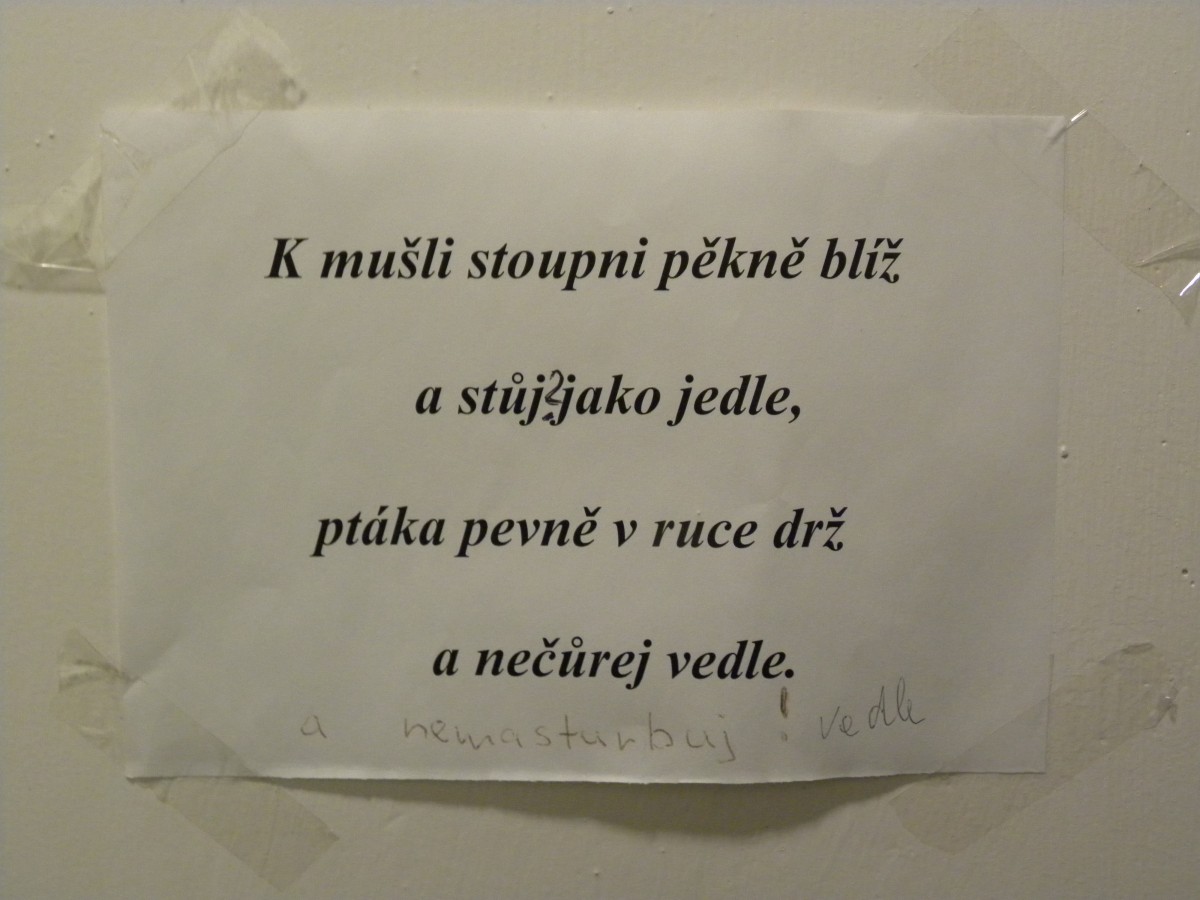 K mušli stoupni pěkně blíž
a stůj?jako jedle,
ptáka pevně v ruce drž
a nečůrej vedle.
a nemasturbuj ! vedle